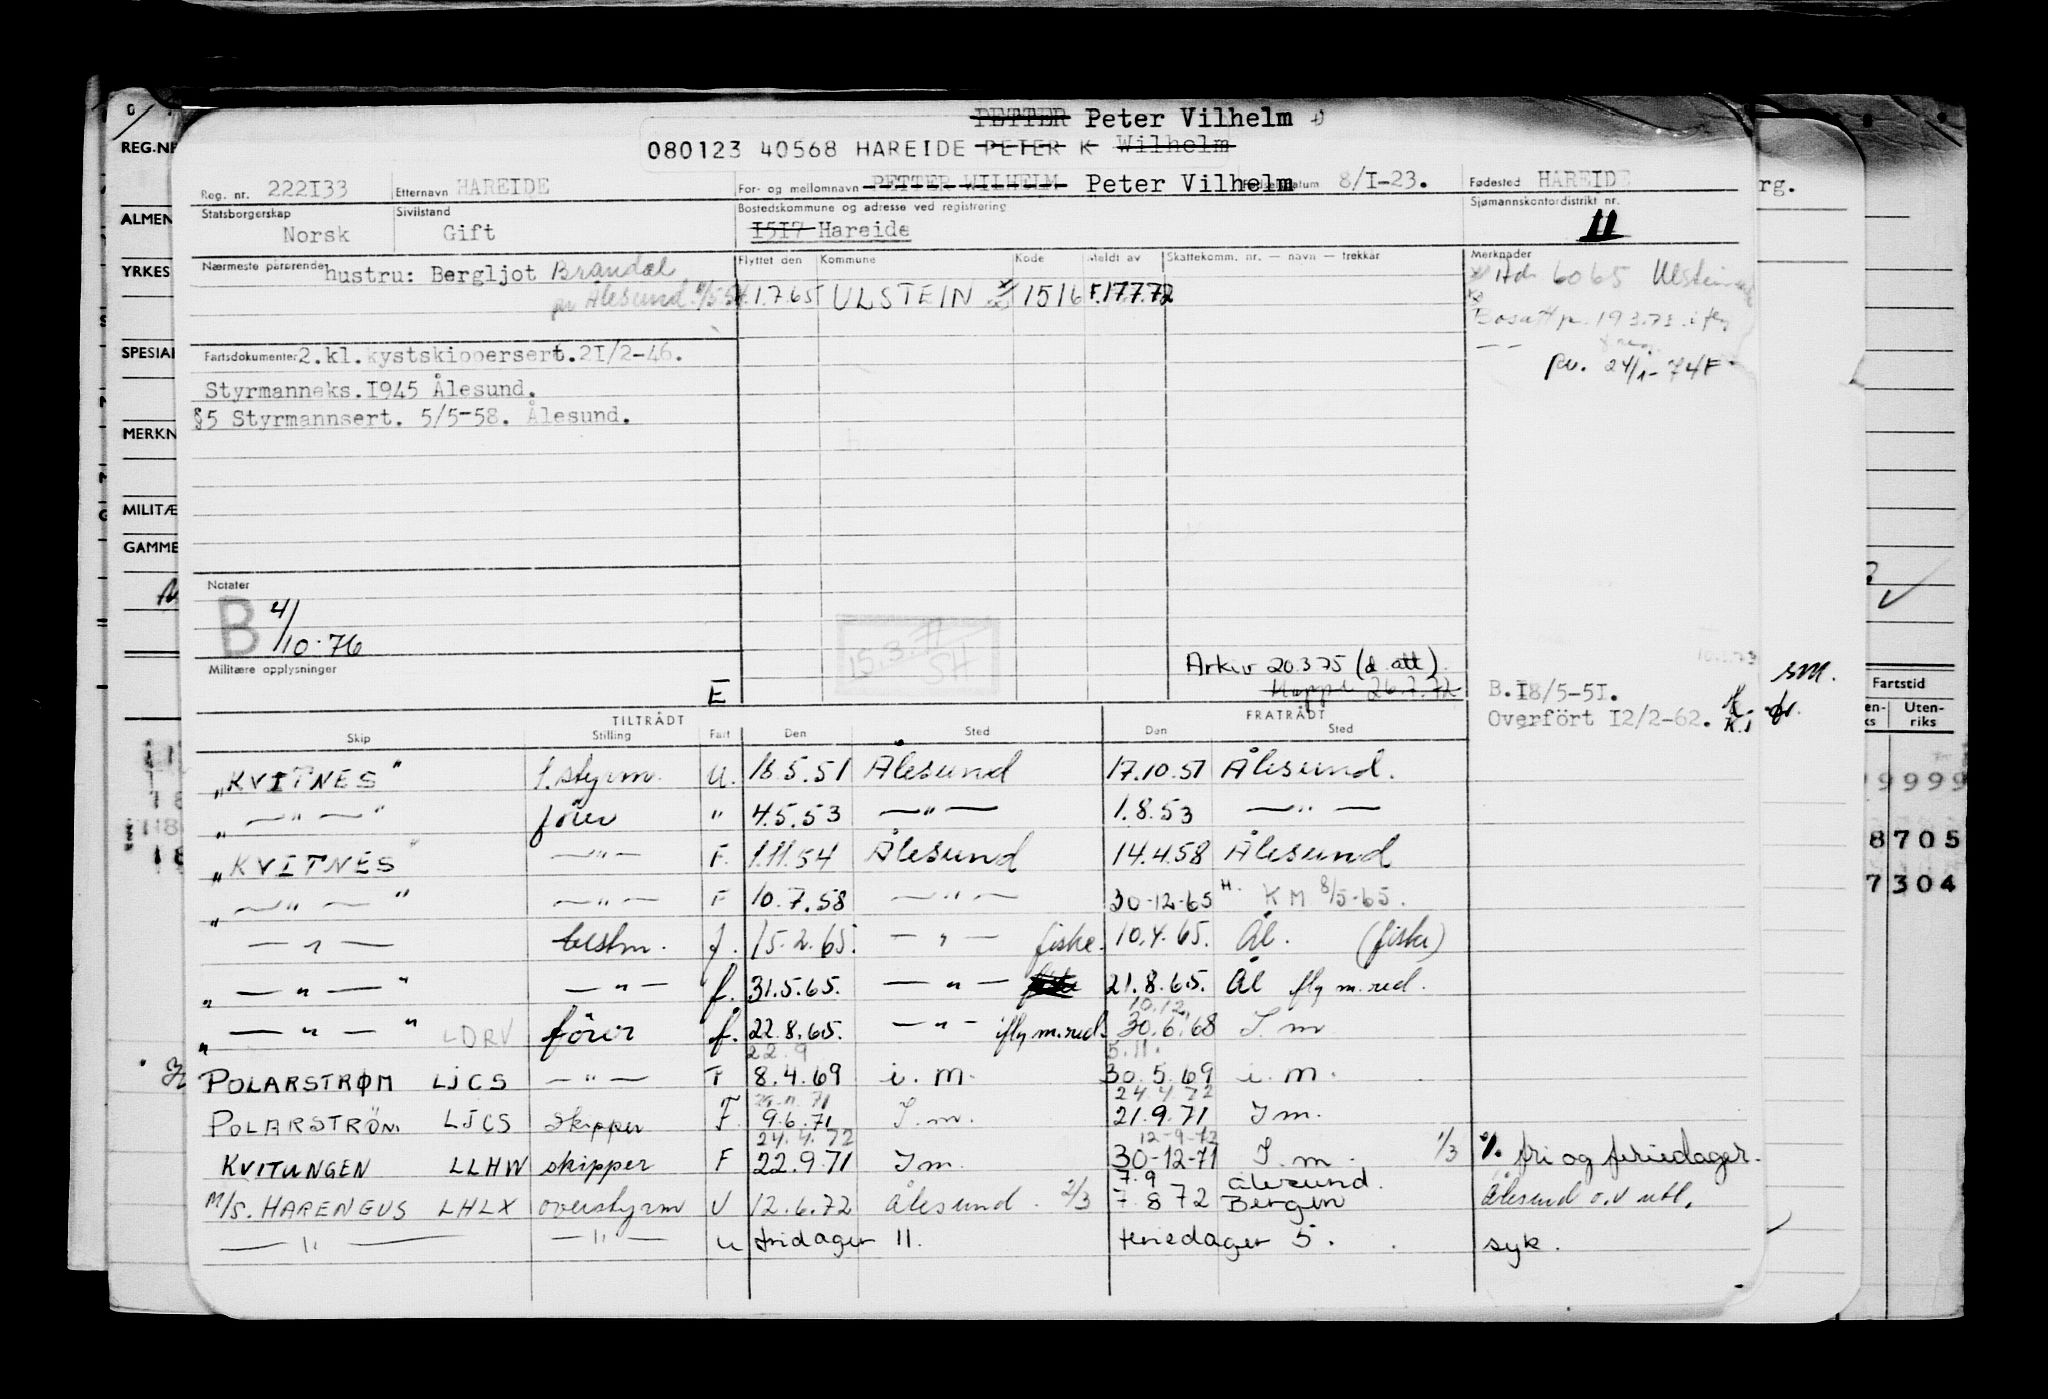 PETTER Peter Vilhelm
080123 40568 HAREIDE PETER K Wilhelm
Reg. nr. 222I33 Etternavn HAREIDE For- og mellomnavn PETTER WILHELM Peter Vilhelm 8/I-23. Fødested HAREIDE
Statsborgerskap Norsk Sivilstand Gift Bostedskommune og adresse ved registrering I5I7 Hareide Sjømannskontordistrikt nr. 11
Nærmeste pårørende hustru: Bergljot Brandal Flyttet den Kommune Kode Meldt av Skattekomm. nr. — navn — trekkår Merknader
Ålesund 1.7.65 ULSTEIN 1516 F.17.7.72
Adr 6065
Bosatt 19.3.73
Fartsdokumenter 2.kl.kystskippersert.2I/2-46.
pv. 24/1-74 F
Styrmanneks.I945 Ålesund.
§5 Styrmannsert. 5/5-58. Ålesund.
Notater
B 4/10-76
15.3.77 SH
Militære opplysninger
Arkiv 20.3.75 (d. att).
26.7.72
E
B.I8/5-5I.
Overført I2/2-62. K.
TILTRÅDT FRATRÅDT
Skip Stilling Fart Den Sted Den Sted
"KVITNES" 1. styrm. U. 18.5.51 Ålesund 17.10.51 Ålesund.
" — " — " fører " 4.5.53 — " — 1.8.53 — " —
"KVITNES" — " — F. 1.11.54 Ålesund 14.4.58 Ålesund
" — " — " — " — F 10.7.58 — " — 30-12-65 H. KM 8/5-65.
— " — bestm. f. 15.2.65. — " — fiske. 10.4.65. Ål. (fiske)
" — " — " — " — f. 31.5.65. — " — 21.8.65. Ål fly m.red.
10.12.
" — " — " LDRV fører f. 22.8.65. — " — ifly m.red. 30.6.68 I m
22.9 5.11.
POLARSTRØM LJCS — " — F 8.4.69 i. m. 30.5.69 i. m.
24.4.72
POLARSTRÖM LJCS skipper F 9.6.71 I. m. 21.9.71 I m.
24.4.72 12-9-72
KVITUNGEN LLHW skipper F 22.9.71 I m. 30-12-71 I. m. 1/3 %. fri og feriedager.
7.9 Ålesund.
M/S. HARENGUS LHLX overstyrm U 12.6.72 Ålesund. 2/3 7.8.72 Bergen Ålesund o.v utl.
— " — — " — u fridager 11. feriedager 5. syk.
REG.NR
ALMEN
YRKES
SPESIAL
MERKN
MILITÆ
GAMME
rg.
sm.
Fartstid
Uten-
riks
9999
8705
7304